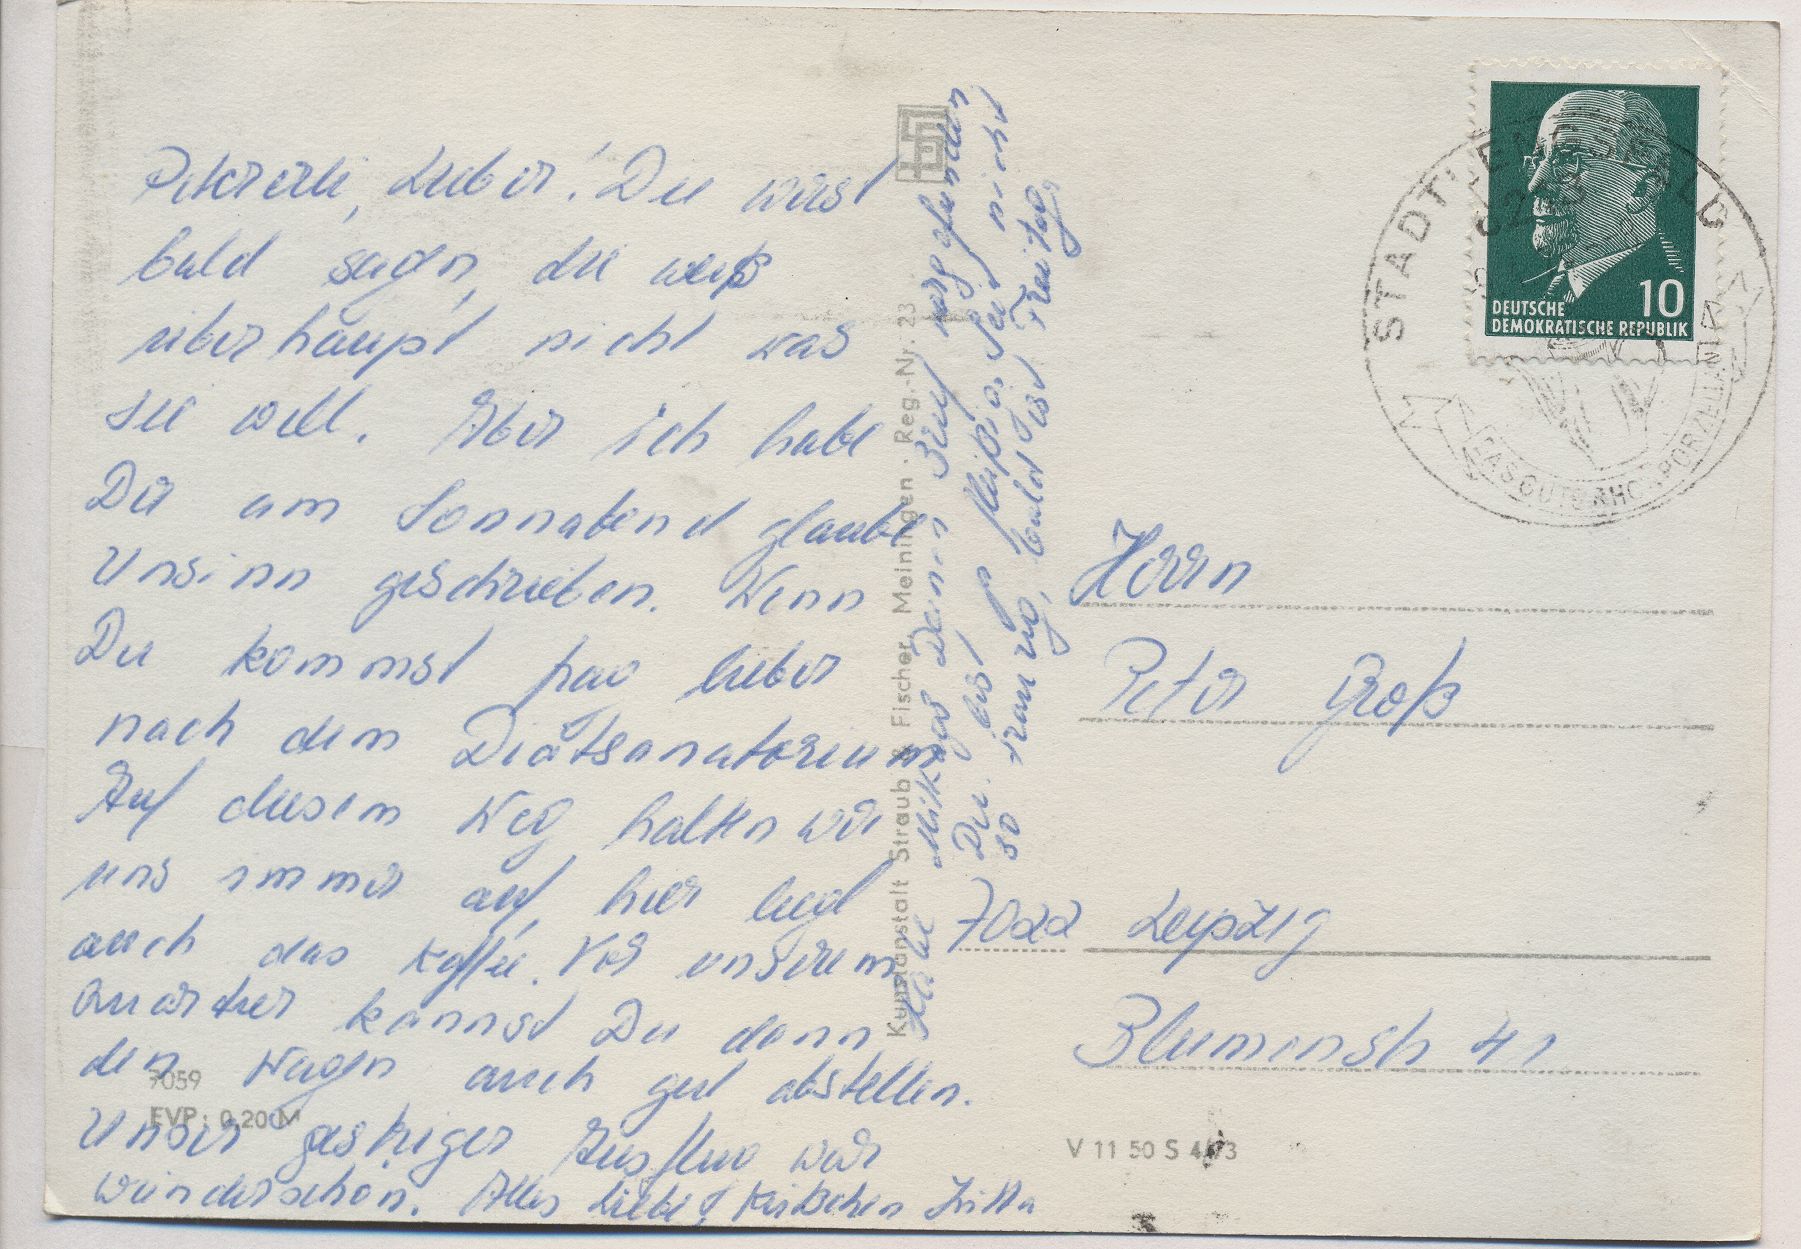 Petererli, Lieber! Du wirst
bald sagen, die weiß
überhaupt nicht was
sie will. Aber ich habe
Dir am Sonnabend glaube
Unsinn geschrieben. Wenn
Du kommst frag lieber
nach dem Diätsanatorium
Auf diesem Weg halten wir
uns immer auf, hier liegt
auch das Kaffee. Vor unserem
Quartier kannst Du dann
den Wagen auch gut abstellen.
Unser gestriger Ausflug war
wunderschön. Alles Liebe! Küßchen Jutta
Habe Mittags Deinen Brief vorgefunden
Du bist fleißig. Sei nicht
so traurig, bald ist Freitag
7059
EVP: 0,20 M
Kunstanstalt Straub & Fischer, Meiningen · Reg.-Nr. 23
DEUTSCHE
DEMOKRATISCHE REPUBLIK
10
STADTLENGSFELD
DAS GUTE RHÖNPORZELLAN
Herrn
Peter Groß
7022 Leipzig
Blumenstr 41
V 11 50 S 4/73